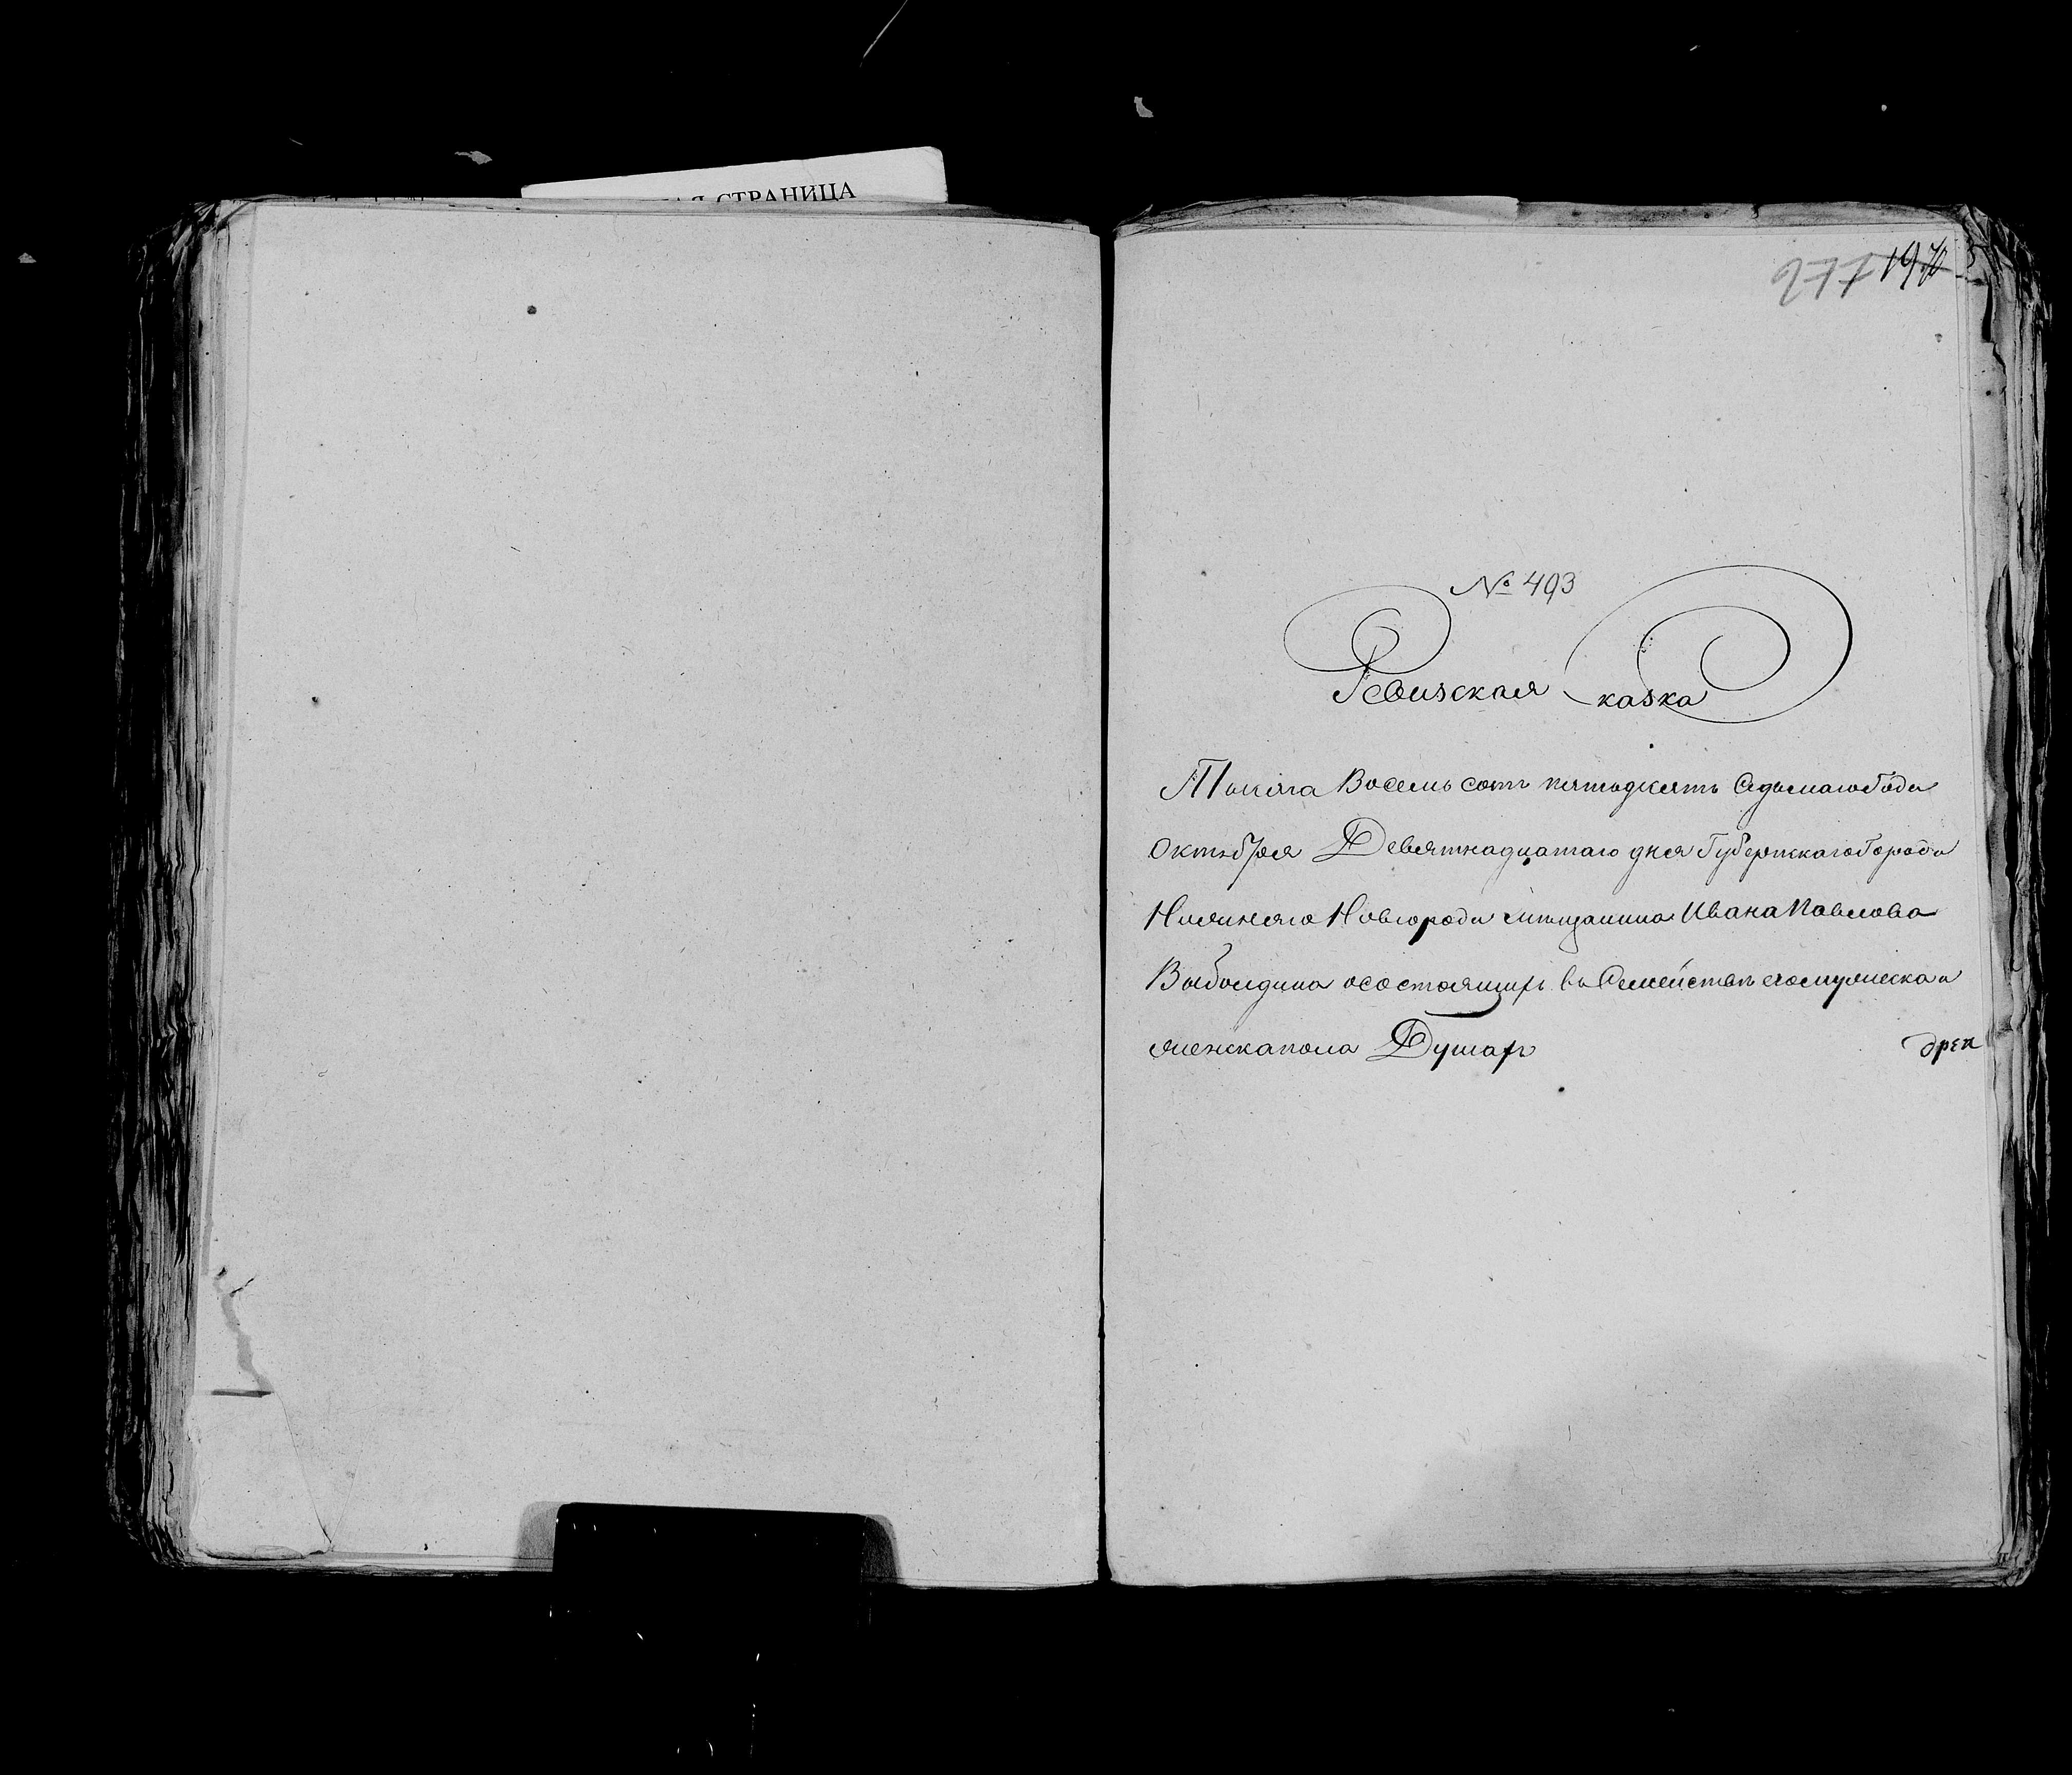 СТРАНИЦА
277 197
№ 493
Ревизская сказка
Тысяча Восемь сотъ пятьдесятъ Седьмаго Года
Октября Девятнадцатаго дня Губернскаго Города
Нижняго Новгорода мѣщанина Ивана Павлова
осостоящихъ въ Семействѣ его мужеска и
женска пола Душахъ